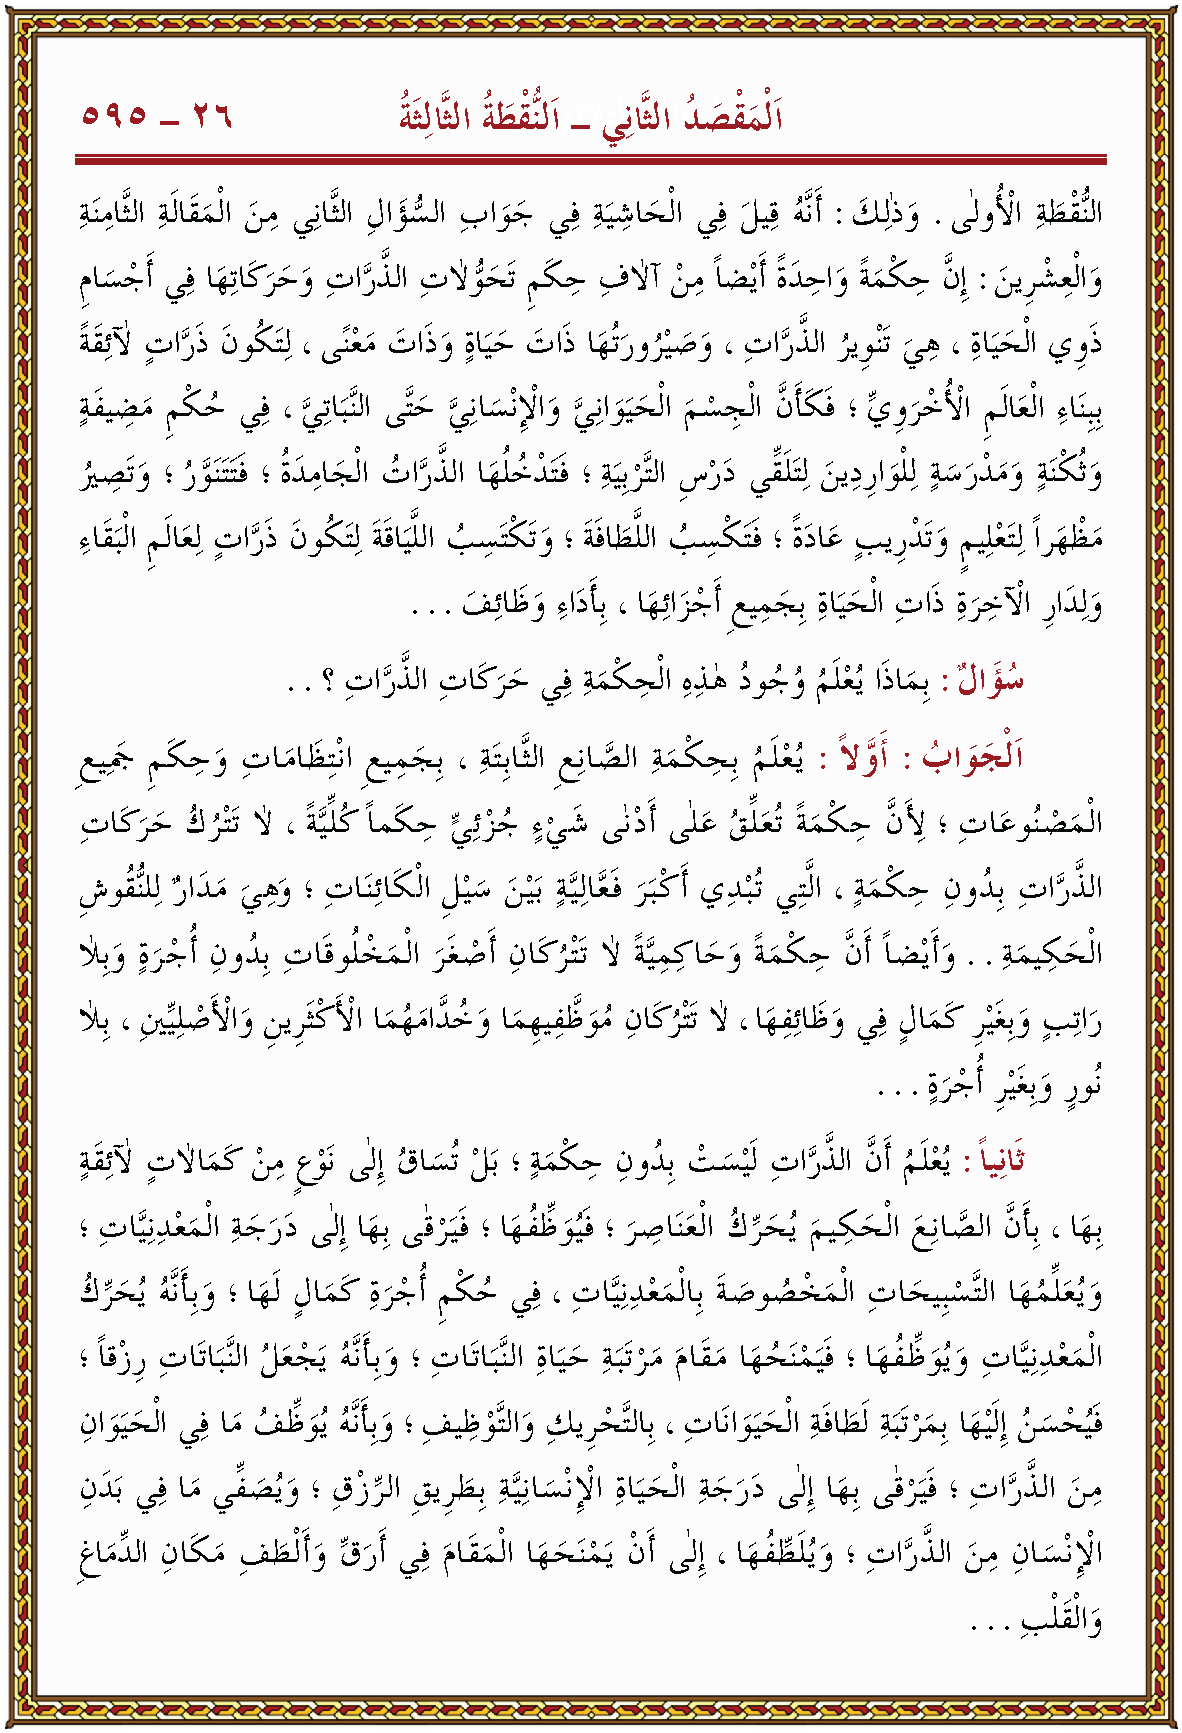 اَلْمَقْصَدُ الثَّانِي ــ اَلنُّقْطَةُ الثَّالِثَةُ ٢٦ ــ ٥٩٥
النُّقْطَةِ الْأُولٰى . وَذٰلِكَ : أَنَّهُ قِيلَ فِي الْحَاشِيَةِ فِي جَوَابِ السُّؤَالِ الثَّانِي مِنَ الْمَقَالَةِ الثَّامِنَةِ
وَالْعِشْرِينَ : إِنَّ حِكْمَةً وَاحِدَةً أَيْضاً مِنْ آلَافِ حِكَمِ تَحَوُّلَاتِ الذَّرَّاتِ وَحَرَكَاتِهَا فِي أَجْسَامِ
ذَوِي الْحَيَاةِ ، هِيَ تَنْوِيرُ الذَّرَّاتِ ، وَصَيْرُورَتُهَا ذَاتَ حَيَاةٍ وَذَاتَ مَعْنًى ، لِتَكُونَ ذَرَّاتٍ لَآئِقَةً
بِبِنَاءِ الْعَالَمِ الْأُخْرَوِيِّ ؛ فَكَأَنَّ الْجِسْمَ الْحَيَوَانِيَّ وَالْإِنْسَانِيَّ حَتَّى النَّبَاتِيَّ ، فِي حُكْمِ مَضِيفَةٍ
وَثُكْنَةٍ وَمَدْرَسَةٍ لِلْوَارِدِينَ لِتَلَقِّي دَرْسِ التَّرْبِيَةِ ؛ فَتَدْخُلُهَا الذَّرَّاتُ الْجَامِدَةُ ؛ فَتَتَنَوَّرُ ؛ وَتَصِيرُ
مَظْهَراً لِتَعْلِيمٍ وَتَدْرِيبٍ عَادَةً ؛ فَتَكْسِبُ اللَّطَافَةَ ؛ وَتَكْتَسِبُ اللَّيَاقَةَ لِتَكُونَ ذَرَّاتٍ لِعَالَمِ الْبَقَاءِ
وَلِدَارِ الْآخِرَةِ ذَاتِ الْحَيَاةِ بِجَمِيعِ أَجْزَائِهَا ، بِأَدَاءِ وَظَائِفَ . . .
سُؤَالٌ : بِمَاذَا يُعْلَمُ وُجُودُ هٰذِهِ الْحِكْمَةِ فِي حَرَكَاتِ الذَّرَّاتِ ؟ . .
اَلْجَوَابُ : أَوَّلاً : يُعْلَمُ بِحِكْمَةِ الصَّانِعِ الثَّابِتَةِ ، بِجَمِيعِ انْتِظَامَاتِ وَحِكَمِ جَمِيعِ
الْمَصْنُوعَاتِ ؛ لِأَنَّ حِكْمَةً تُعَلِّقُ عَلٰى أَدْنٰى شَيْءٍ جُزْئِيٍّ حِكَماً كُلِّيَّةً ، لَا تَتْرُكُ حَرَكَاتِ
الذَّرَّاتِ بِدُونِ حِكْمَةٍ ، الَّتِي تُبْدِي أَكْبَرَ فَعَّالِيَّةٍ بَيْنَ سَيْلِ الْكَائِنَاتِ ؛ وَهِيَ مَدَارٌ لِلنُّقُوشِ
الْحَكِيمَةِ . . وَأَيْضاً أَنَّ حِكْمَةً وَحَاكِمِيَّةً لَا تَتْرُكَانِ أَصْغَرَ الْمَخْلُوقَاتِ بِدُونِ أُجْرَةٍ وَبِلَا
رَاتِبٍ وَبِغَيْرِ كَمَالٍ فِي وَظَائِفِهَا ، لَا تَتْرُكَانِ مُوَظَّفِيهِمَا وَخُدَّامَهُمَا الْأَكْثَرِينَ وَالْأَصْلِيِّينَ ، بِلَا
نُورٍ وَبِغَيْرِ أُجْرَةٍ . . .
ثَانِياً : يُعْلَمُ أَنَّ الذَّرَّاتِ لَيْسَتْ بِدُونِ حِكْمَةٍ ؛ بَلْ تُسَاقُ إِلٰى نَوْعٍ مِنْ كَمَالَاتٍ لَآئِقَةٍ
بِهَا ، بِأَنَّ الصَّانِعَ الْحَكِيمَ يُحَرِّكُ الْعَنَاصِرَ ؛ فَيُوَظِّفُهَا ؛ فَيَرْقٰى بِهَا إِلٰى دَرَجَةِ الْمَعْدِنِيَّاتِ ؛
وَيُعَلِّمُهَا التَّسْبِيحَاتِ الْمَخْصُوصَةَ بِالْمَعْدِنِيَّاتِ ، فِي حُكْمِ أُجْرَةِ كَمَالٍ لَهَا ؛ وَبِأَنَّهُ يُحَرِّكُ
الْمَعْدِنِيَّاتِ وَيُوَظِّفُهَا ؛ فَيَمْنَحُهَا مَقَامَ مَرْتَبَةِ حَيَاةِ النَّبَاتَاتِ ؛ وَبِأَنَّهُ يَجْعَلُ النَّبَاتَاتِ رِزْقاً ؛
فَيُحْسَنُ إِلَيْهَا بِمَرْتَبَةِ لَطَافَةِ الْحَيَوَانَاتِ ، بِالتَّحْرِيكِ وَالتَّوْظِيفِ ؛ وَبِأَنَّهُ يُوَظِّفُ مَا فِي الْحَيَوَانِ
مِنَ الذَّرَّاتِ ؛ فَيَرْقٰى بِهَا إِلٰى دَرَجَةِ الْحَيَاةِ الْإِنْسَانِيَّةِ بِطَرِيقِ الرِّزْقِ ؛ وَيُصَفِّي مَا فِي بَدَنِ
الْإِنْسَانِ مِنَ الذَّرَّاتِ ؛ وَيُلَطِّفُهَا ، إِلٰى أَنْ يَمْنَحَهَا الْمَقَامَ فِي أَرَقِّ وَأَلْطَفِ مَكَانِ الدِّمَاغِ
وَالْقَلْبِ . . .